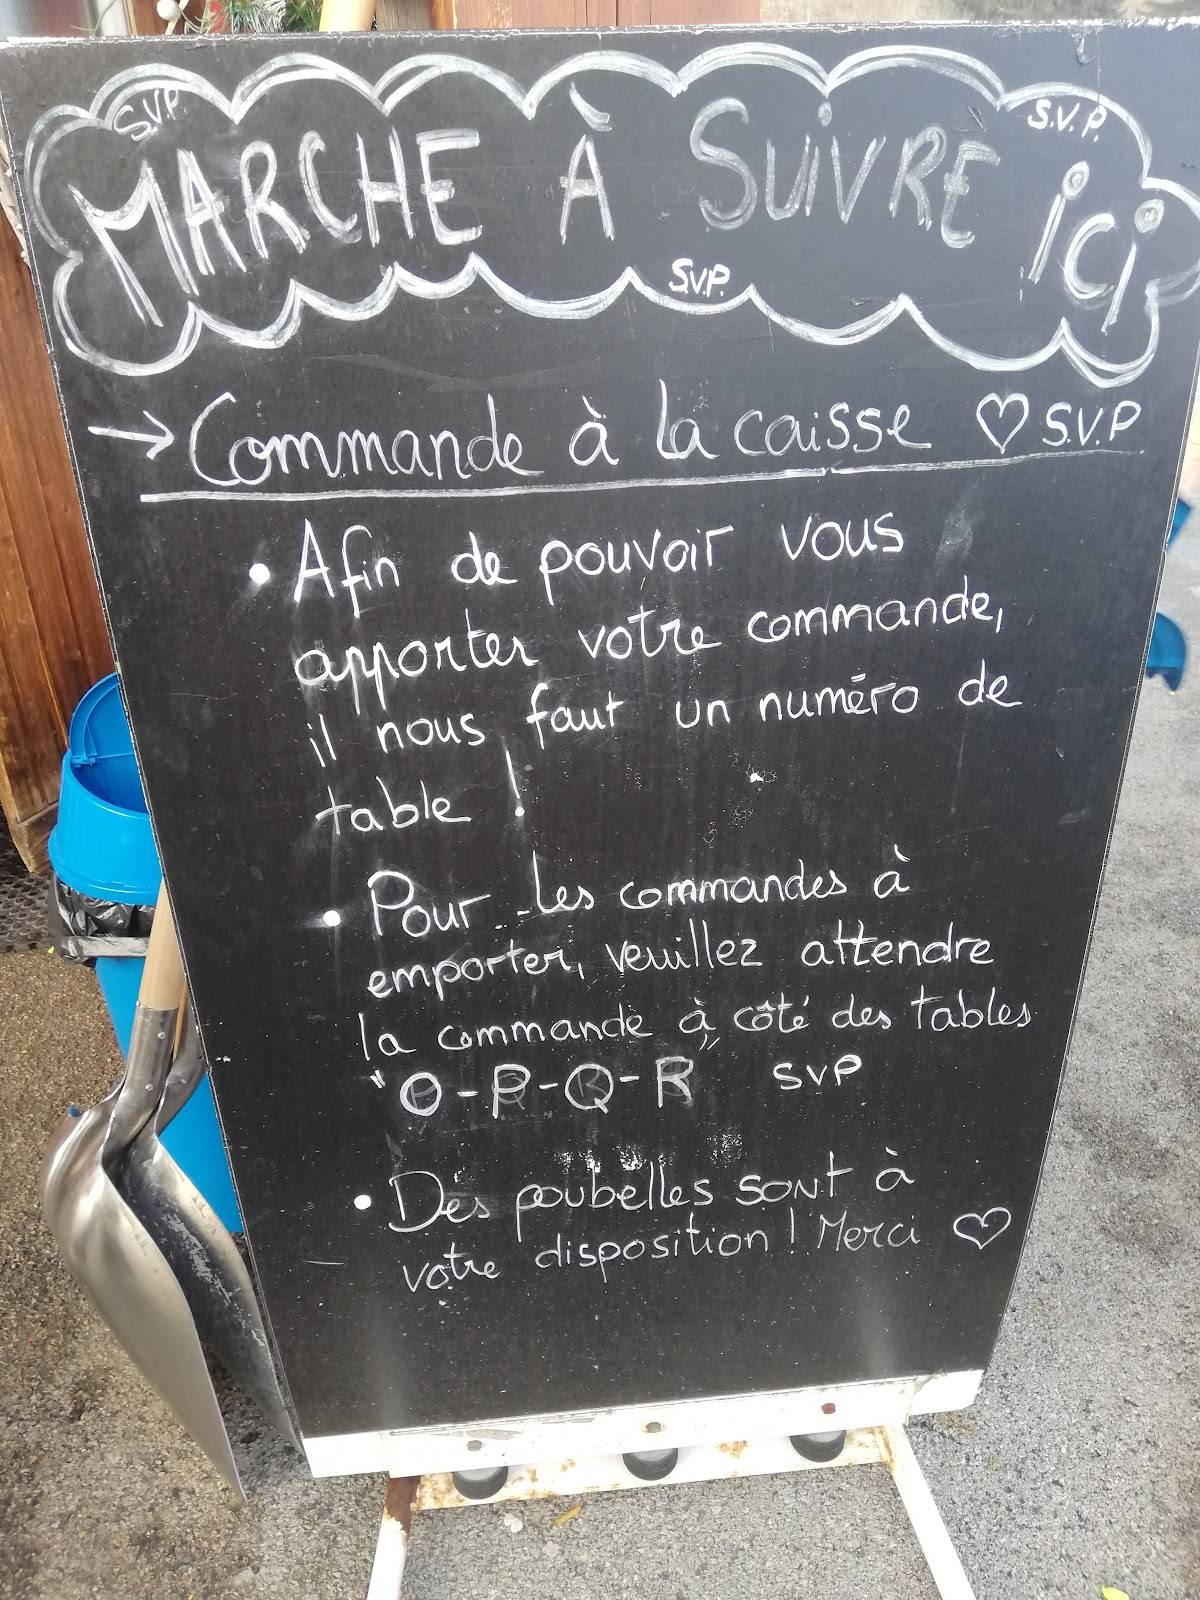 S.V.P. S.V.P.
MARCHE À SUIVRE ICI
S.V.P.
→ Commande à la caisse ♡ S.V.P
• Afin de pouvoir vous
apporter votre commande,
il nous faut un numéro de
table !
• Pour les commandes à
emporter, veuillez attendre
la commande à côté des tables
"O-P-Q-R" SVP
• Des poubelles sont à
votre disposition ! Merci ♡